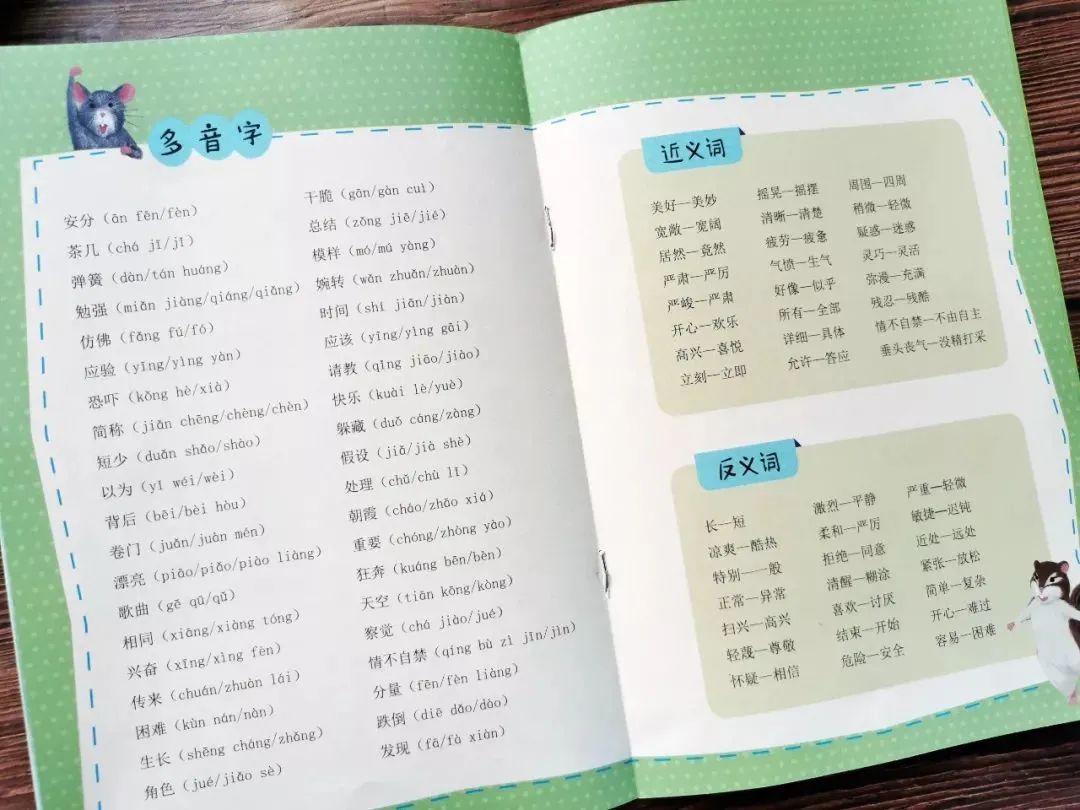 多音字
安分（ān fēn/fèn）
茶几（chá jī/jǐ）
弹簧（dàn/tán huáng）
勉强（miǎn jiàng/qiáng/qiǎng）
仿佛（fǎng fú/fó）
应验（yīng/yìng yàn）
恐吓（kǒng hè/xià）
简称（jiǎn chēng/chèng/chèn）
短少（duǎn shǎo/shào）
以为（yǐ wéi/wèi）
背后（bēi/bèi hòu）
卷门（juǎn/juàn mén）
漂亮（piāo/piǎo/piào liàng）
歌曲（gē qū/qǔ）
相同（xiāng/xiàng tóng）
兴奋（xīng/xìng fèn）
传来（chuán/zhuàn lái）
困难（kùn nán/nàn）
生长（shēng cháng/zhǎng）
角色（jué/jiǎo sè）
干脆（gān/gàn cuì）
总结（zǒng jiē/jié）
模样（mó/mú yàng）
婉转（wǎn zhuǎn/zhuàn）
时间（shí jiān/jiàn）
应该（yīng/yìng gāi）
请教（qǐng jiāo/jiào）
快乐（kuài lè/yuè）
躲藏（duǒ cáng/zàng）
假设（jiǎ/jià shè）
处理（chǔ/chù lǐ）
朝霞（cháo/zhāo xiá）
重要（chóng/zhòng yào）
狂奔（kuáng bēn/bèn）
天空（tiān kōng/kòng）
察觉（chá jiào/jué）
情不自禁（qíng bù zì jīn/jìn）
分量（fēn/fèn liàng）
跌倒（diē dǎo/dào）
发现（fā/fà xiàn）
近义词
美好—美妙
宽敞—宽阔
居然—竟然
严肃—严厉
严峻—严肃
开心—欢乐
高兴—喜悦
立刻—立即
摇晃—摇摆
清晰—清楚
疲劳—疲惫
气愤—生气
好像—似乎
所有—全部
详细—具体
允许—答应
周围—四周
稍微—轻微
疑惑—迷惑
灵巧—灵活
弥漫—充满
残忍—残酷
情不自禁—不由自主
垂头丧气—没精打采
反义词
长—短
凉爽—酷热
特别—一般
正常—异常
扫兴—高兴
轻蔑—尊敬
怀疑—相信
激烈—平静
柔和—严厉
拒绝—同意
清醒—糊涂
喜欢—讨厌
结束—开始
危险—安全
严重—轻微
敏捷—迟钝
近处—远处
紧张—放松
简单—复杂
开心—难过
容易—困难